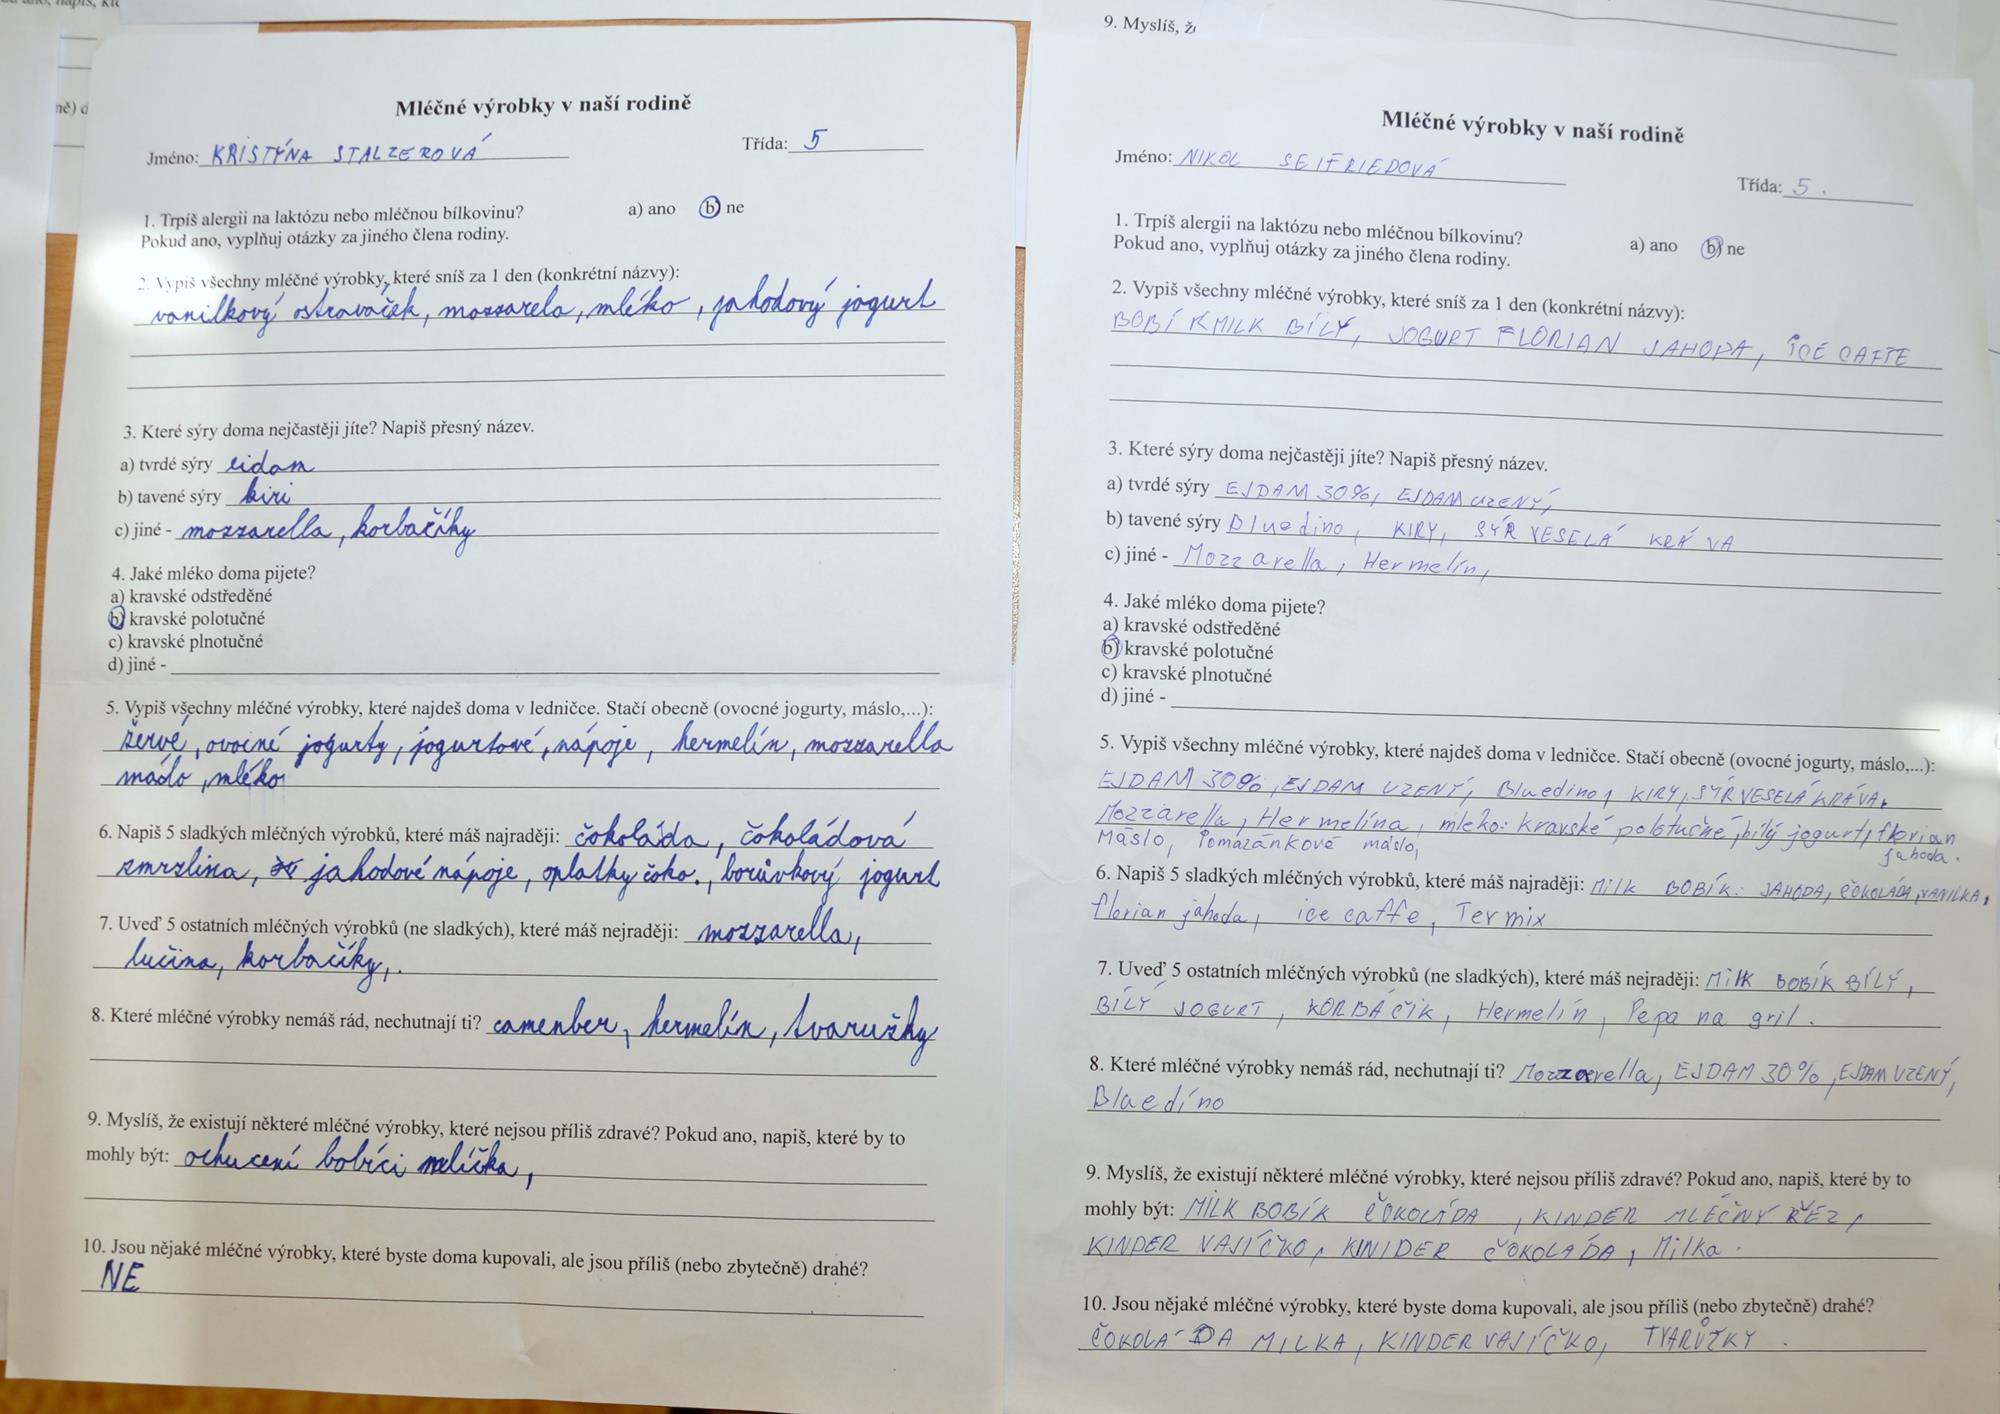 9. Myslíš, ž
Mléčné výrobky v naší rodině
Jméno: KRISTÝNA STALZEROVÁ
Třída: 5
1. Trpíš alergii na laktózu nebo mléčnou bílkovinu? a) ano b) ne
Pokud ano, vyplňuj otázky za jiného člena rodiny.
2. Vypiš všechny mléčné výrobky, které sníš za 1 den (konkrétní názvy):
vanilkový ostravaček, mozzarela, mléko, jahodový jogurt
3. Které sýry doma nejčastěji jíte? Napiš přesný název.
a) tvrdé sýry eidam
b) tavené sýry kiri
c) jiné - mozzarella, korbačíky
4. Jaké mléko doma pijete?
a) kravské odstředěné
b) kravské polotučné
c) kravské plnotučné
d) jiné -
5. Vypiš všechny mléčné výrobky, které najdeš doma v ledničce. Stačí obecně (ovocné jogurty, máslo,...):
žervé, ovocné jogurty, jogurtové, nápoje, hermelín, mozzarella
máslo, mléko
6. Napiš 5 sladkých mléčných výrobků, které máš najraději: čokoláda, čokoládová
zmrzlina, jahodové nápoje, oplatky čoko., borůvkový jogurt
7. Uveď 5 ostatních mléčných výrobků (ne sladkých), které máš nejraději: mozzarella,
lučina, korbačíky,.
8. Které mléčné výrobky nemáš rád, nechutnají ti? camenber, hermelín, tvaružky
9. Myslíš, že existují některé mléčné výrobky, které nejsou příliš zdravé? Pokud ano, napiš, které by to
mohly být: ochucení bobíci mlíčka,
10. Jsou nějaké mléčné výrobky, které byste doma kupovali, ale jsou příliš (nebo zbytečně) drahé?
NE
Mléčné výrobky v naší rodině
Jméno: NIKOL SEIFRIEDOVÁ
Třída: 5.
1. Trpíš alergii na laktózu nebo mléčnou bílkovinu? a) ano b) ne
Pokud ano, vyplňuj otázky za jiného člena rodiny.
2. Vypiš všechny mléčné výrobky, které sníš za 1 den (konkrétní názvy):
BOBÍK MILK BÍLÝ, JOGURT FLORIAN JAHODA, ICE CAFFE
3. Které sýry doma nejčastěji jíte? Napiš přesný název.
a) tvrdé sýry EJDAM 30%, EJDAM UZENÝ,
b) tavené sýry Bluedino, KIRY, SÝR VESELÁ KRÁVA
c) jiné - Mozzarella, Hermelín,
4. Jaké mléko doma pijete?
a) kravské odstředěné
b) kravské polotučné
c) kravské plnotučné
d) jiné -
5. Vypiš všechny mléčné výrobky, které najdeš doma v ledničce. Stačí obecně (ovocné jogurty, máslo,...):
EJDAM 30%, EJDAM UZENÝ, Bluedino, KIRY, SÝR VESELÁ KRÁVA,
Mozziarella, Hermelína, mléko: kravské polotučné, bílý jogurt, florian
jahoda.
Máslo, Pomazánkové máslo,
6. Napiš 5 sladkých mléčných výrobků, které máš najraději: Milk BOBÍK: JAHODA, ČOKOLÁDA, VANILKA,
florian jahoda, ice caffe, Termix
7. Uveď 5 ostatních mléčných výrobků (ne sladkých), které máš nejraději: Milk BOBÍK BÍLÝ,
BÍLÝ JOGURT, KORBÁČIK, Hermelín, Pepa na gril.
8. Které mléčné výrobky nemáš rád, nechutnají ti? Mozzarella, EJDAM 30%, EJDAM UZENÝ,
Bluedíno
9. Myslíš, že existují některé mléčné výrobky, které nejsou příliš zdravé? Pokud ano, napiš, které by to
mohly být: MILK BOBÍK ČOKOLÁDA, KINDER MLÉČNÝ ŘEZ,
KINDER VAJÍČKO, KINIDER ČOKOLÁDA, Milka.
10. Jsou nějaké mléčné výrobky, které byste doma kupovali, ale jsou příliš (nebo zbytečně) drahé?
ČOKOLÁDA MILKA, KINDER VAJÍČKO, TVARŮŽKY.